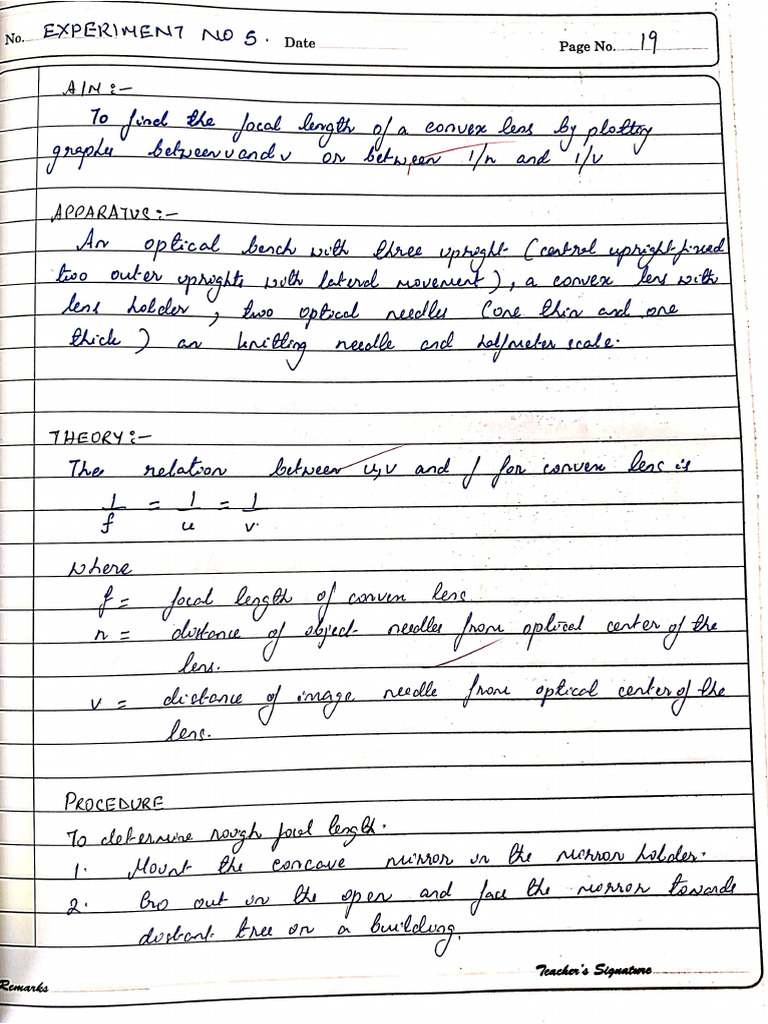 No. EXPERIMENT NO 5. Date Page No. 19
AIM :-
To find the focal length of a convex lens by plotting
graphs between u and v or between 1/u and 1/v
APPARATUS :-
An optical bench with three upright (central upright fixed
two outer uprights with lateral movement), a convex lens with
lens holder, two optical needles (one thin and one
thick) an knitting needle and half meter scale.
THEORY :-
The relation between u,v and f for convex lens is
1/f = 1/u = 1/v.
where
f = focal length of convex lens
u = distance of object needles from optical center of the
lens.
v = distance of image needle from optical center of the
lens.
PROCEDURE
To determine rough focal length.
1. Mount the concave mirror in the mirror holder.
2. Go out in the open and face the mirror towards
distant tree or a building.
Teacher's Signature
Remarks